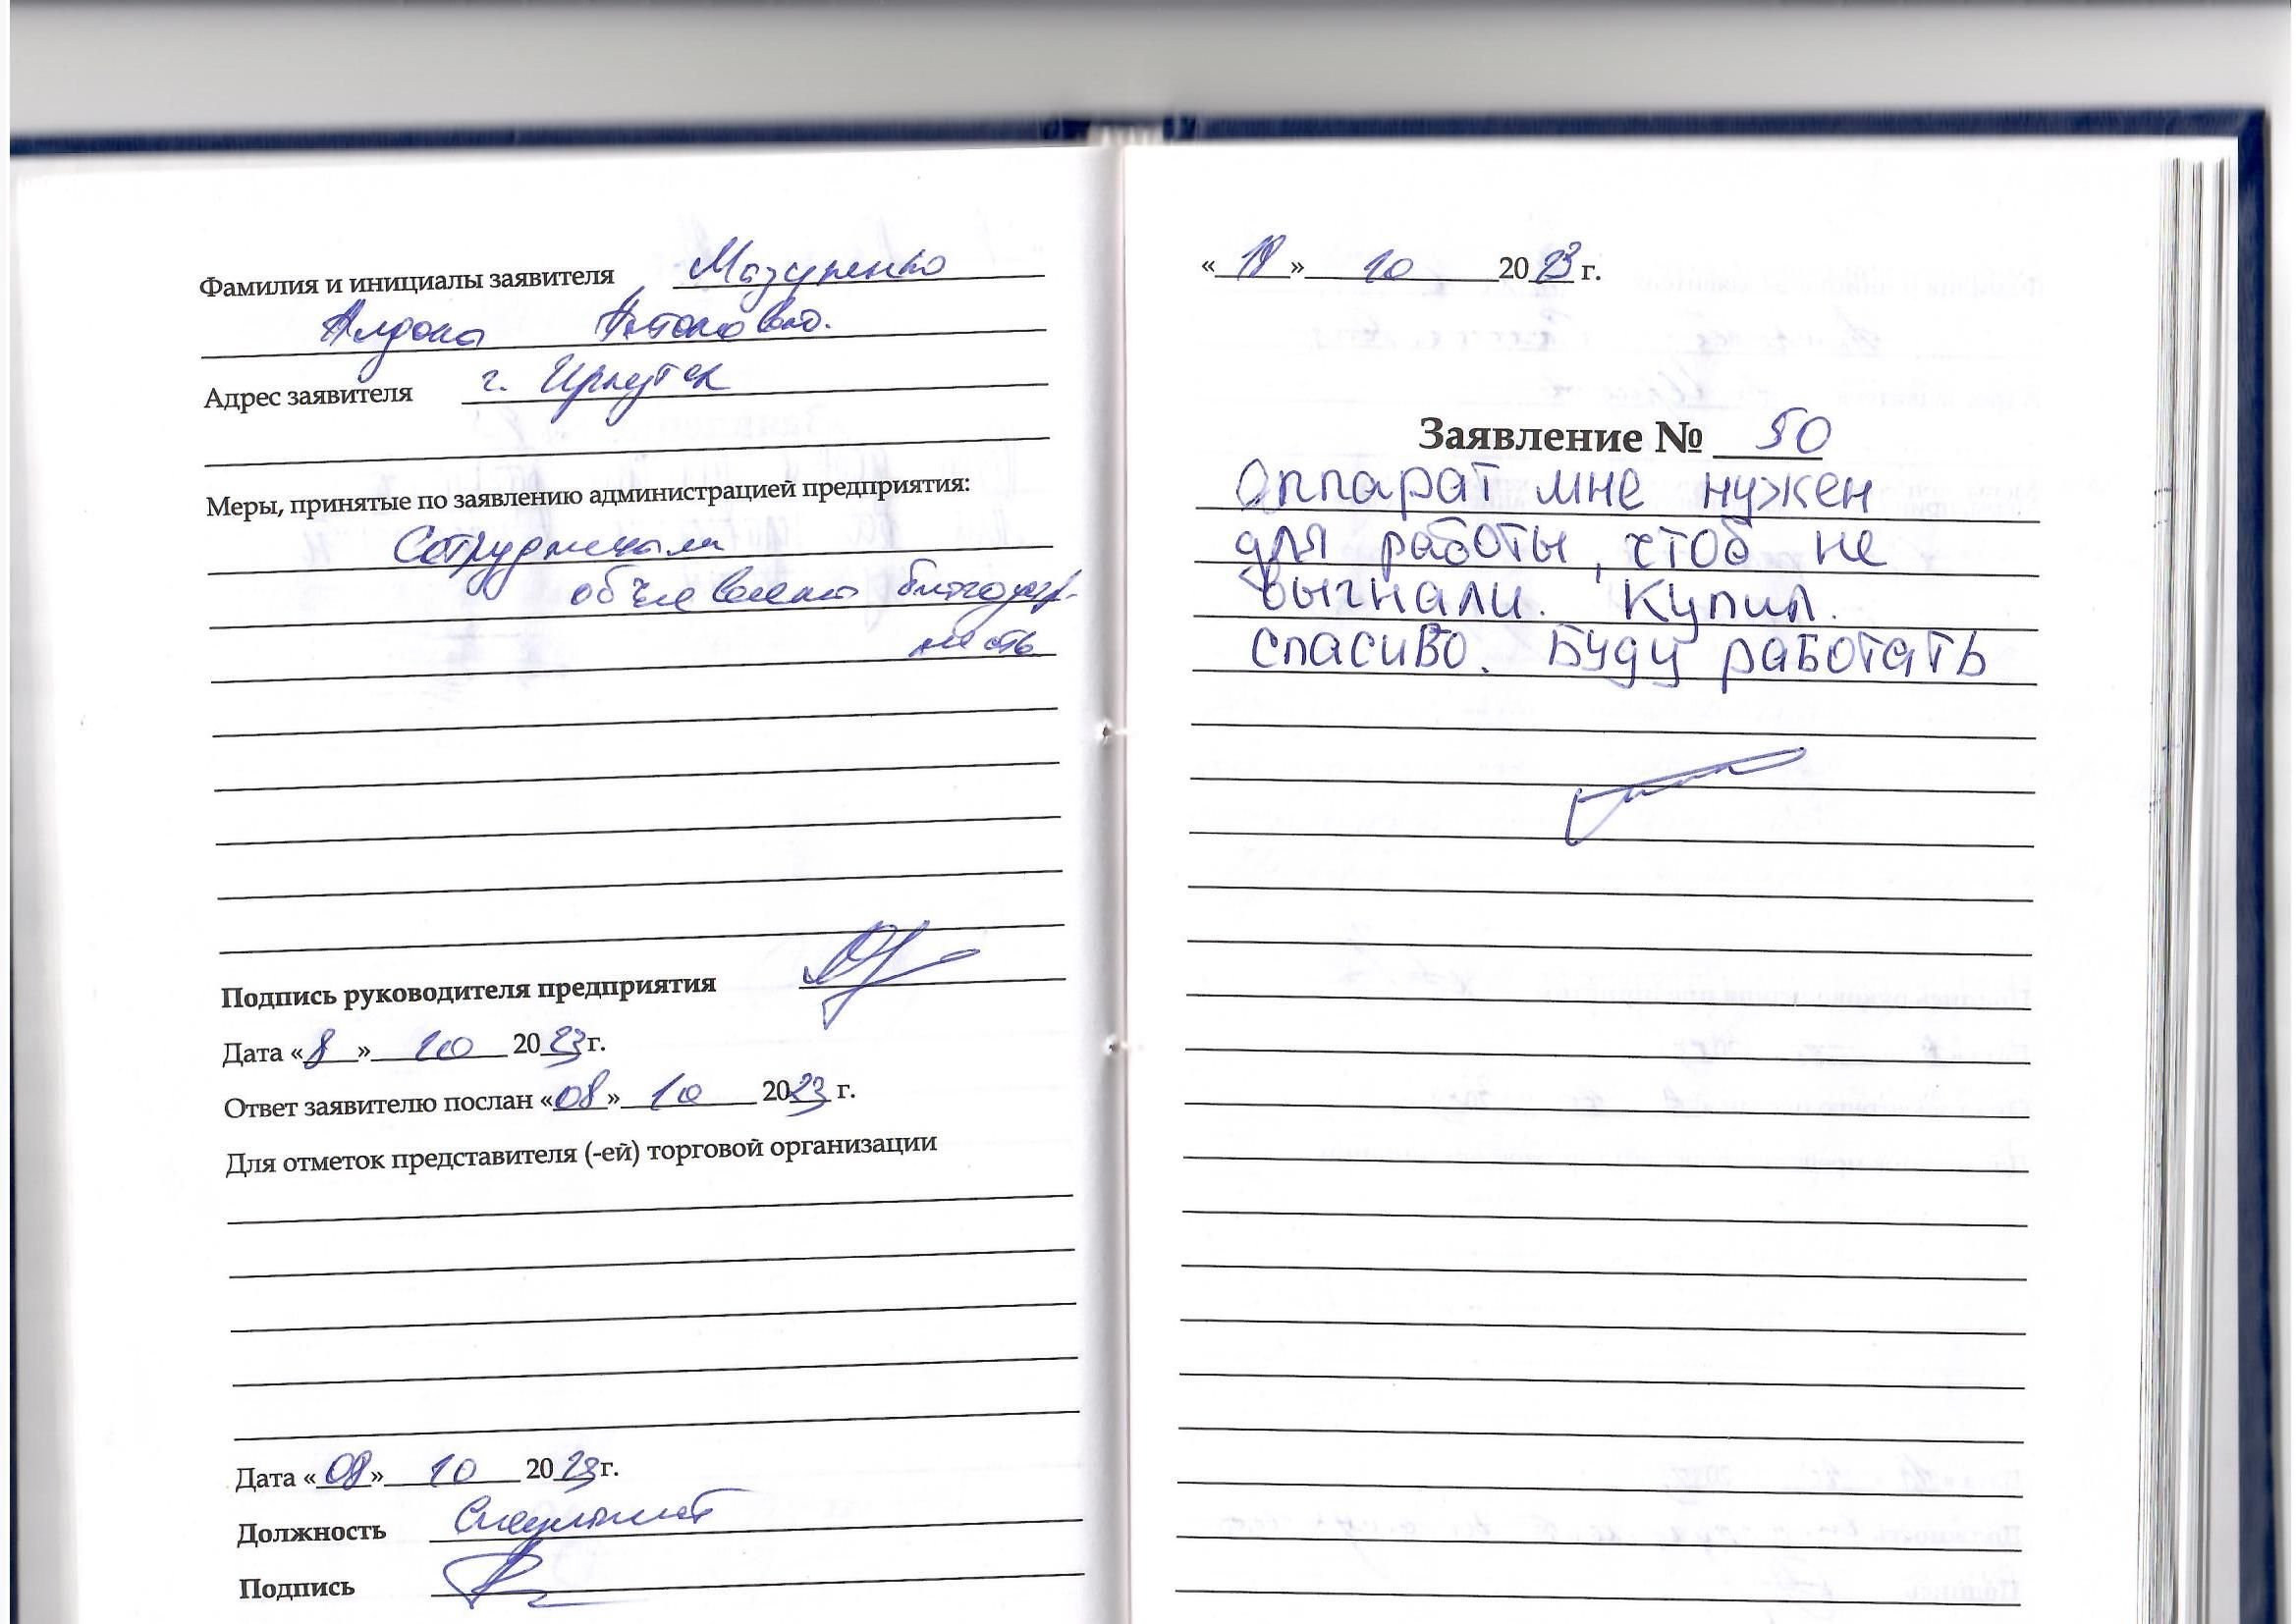 Фамилия и инициалы заявителя Мазуренко
Алдона Антоновна.
Адрес заявителя г. Иркутск
Меры, принятые по заявлению администрацией предприятия:
Сотрудницам
объявлена благодар-
ность
Подпись руководителя предприятия
Дата «8» 10 2023 г.
Ответ заявителю послан «08» 10 2023 г.
Для отметок представителя (-ей) торговой организации
Дата «08» 10 2023 г.
Должность Специалист
Подпись
« » 10 2023 г.
Заявление № 50
Аппарат мне нужен
для работы, чтоб не
выгнали. Купил.
спасиво. Буду работать